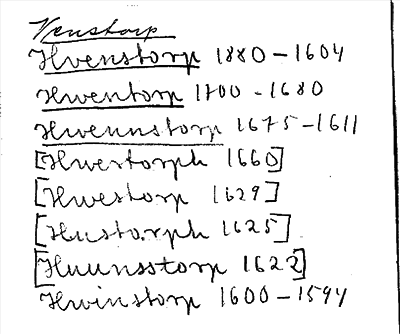 Venstorp
Hvenstorp 1880-1604
Hwentorp 1700-1680
Hwennstorp 1675-1611
[Hwestorph 1660]
[Hwestorp 1629]
[Hustorph 1625]
[Huunsstorp 1622]
Hwinstorp 1600-1594